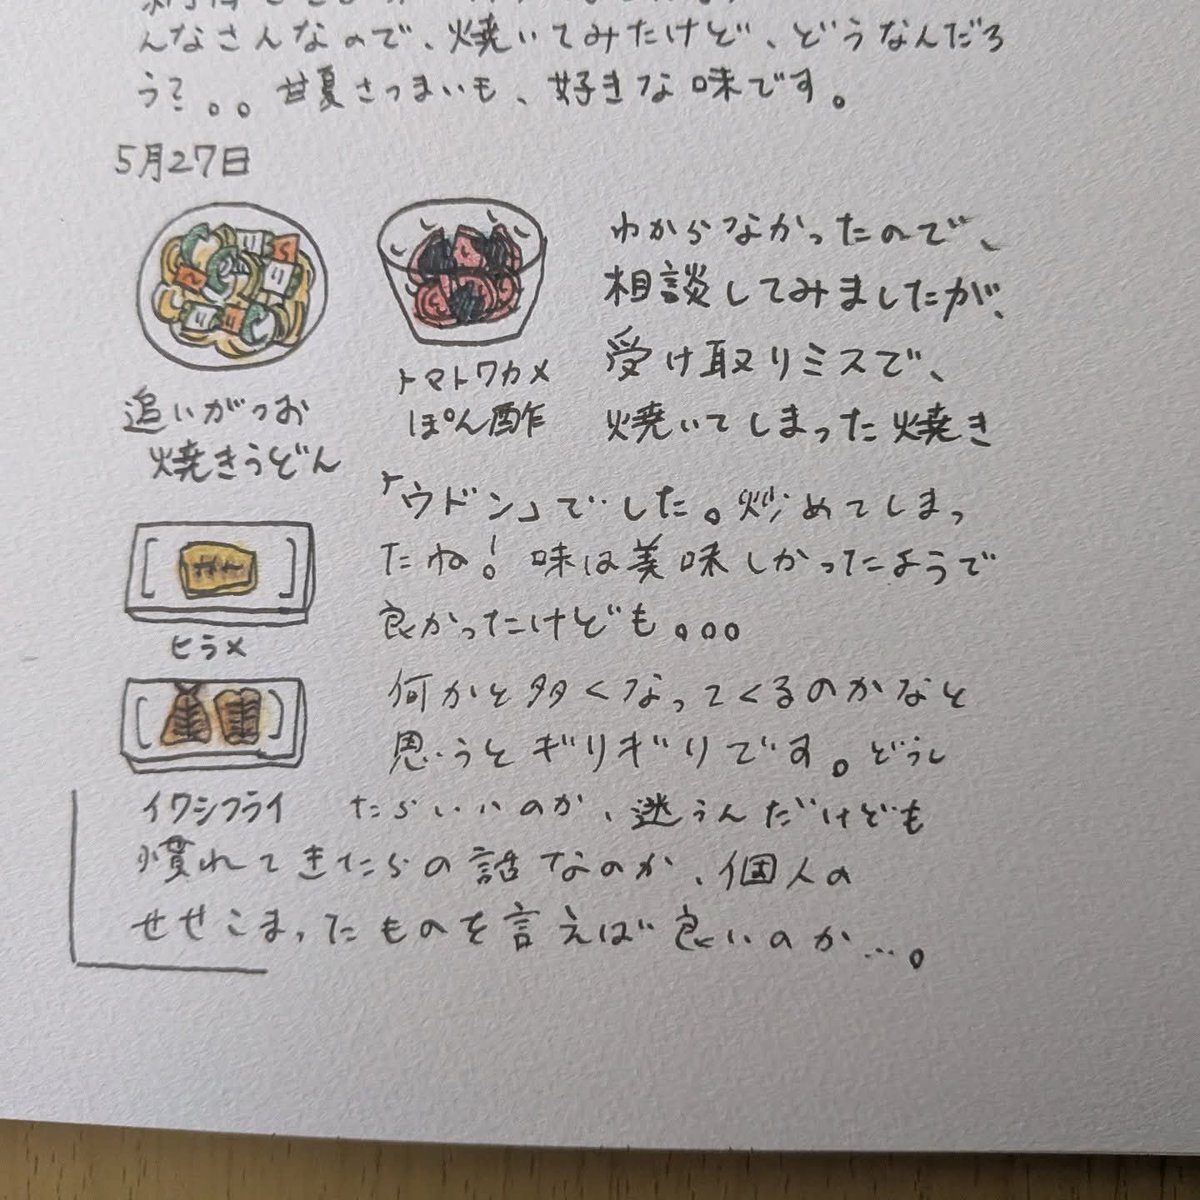 んなさんなので、焼いてみたけど、どうなんだろ
う?。。甘夏さつまいも、好きな味です。
5月27日
わからなかったので、
相談してみましたが、
受け取りミスで、
焼いてしまった焼き
トマトワカメ
ぽん酢
追いがつお
焼きうどん
「ウドン」でした。炒めてしまっ
たね!味は美味しかったようで
良かったけども。。。
ヒラメ
何かと多くなってくるのかなと
思うとギリギリです。どうし
イワシフライ
たらいいのか、迷うんだけども
慣れてきたらの話なのか、個人の
せせこまったものを言えば良いのか…。